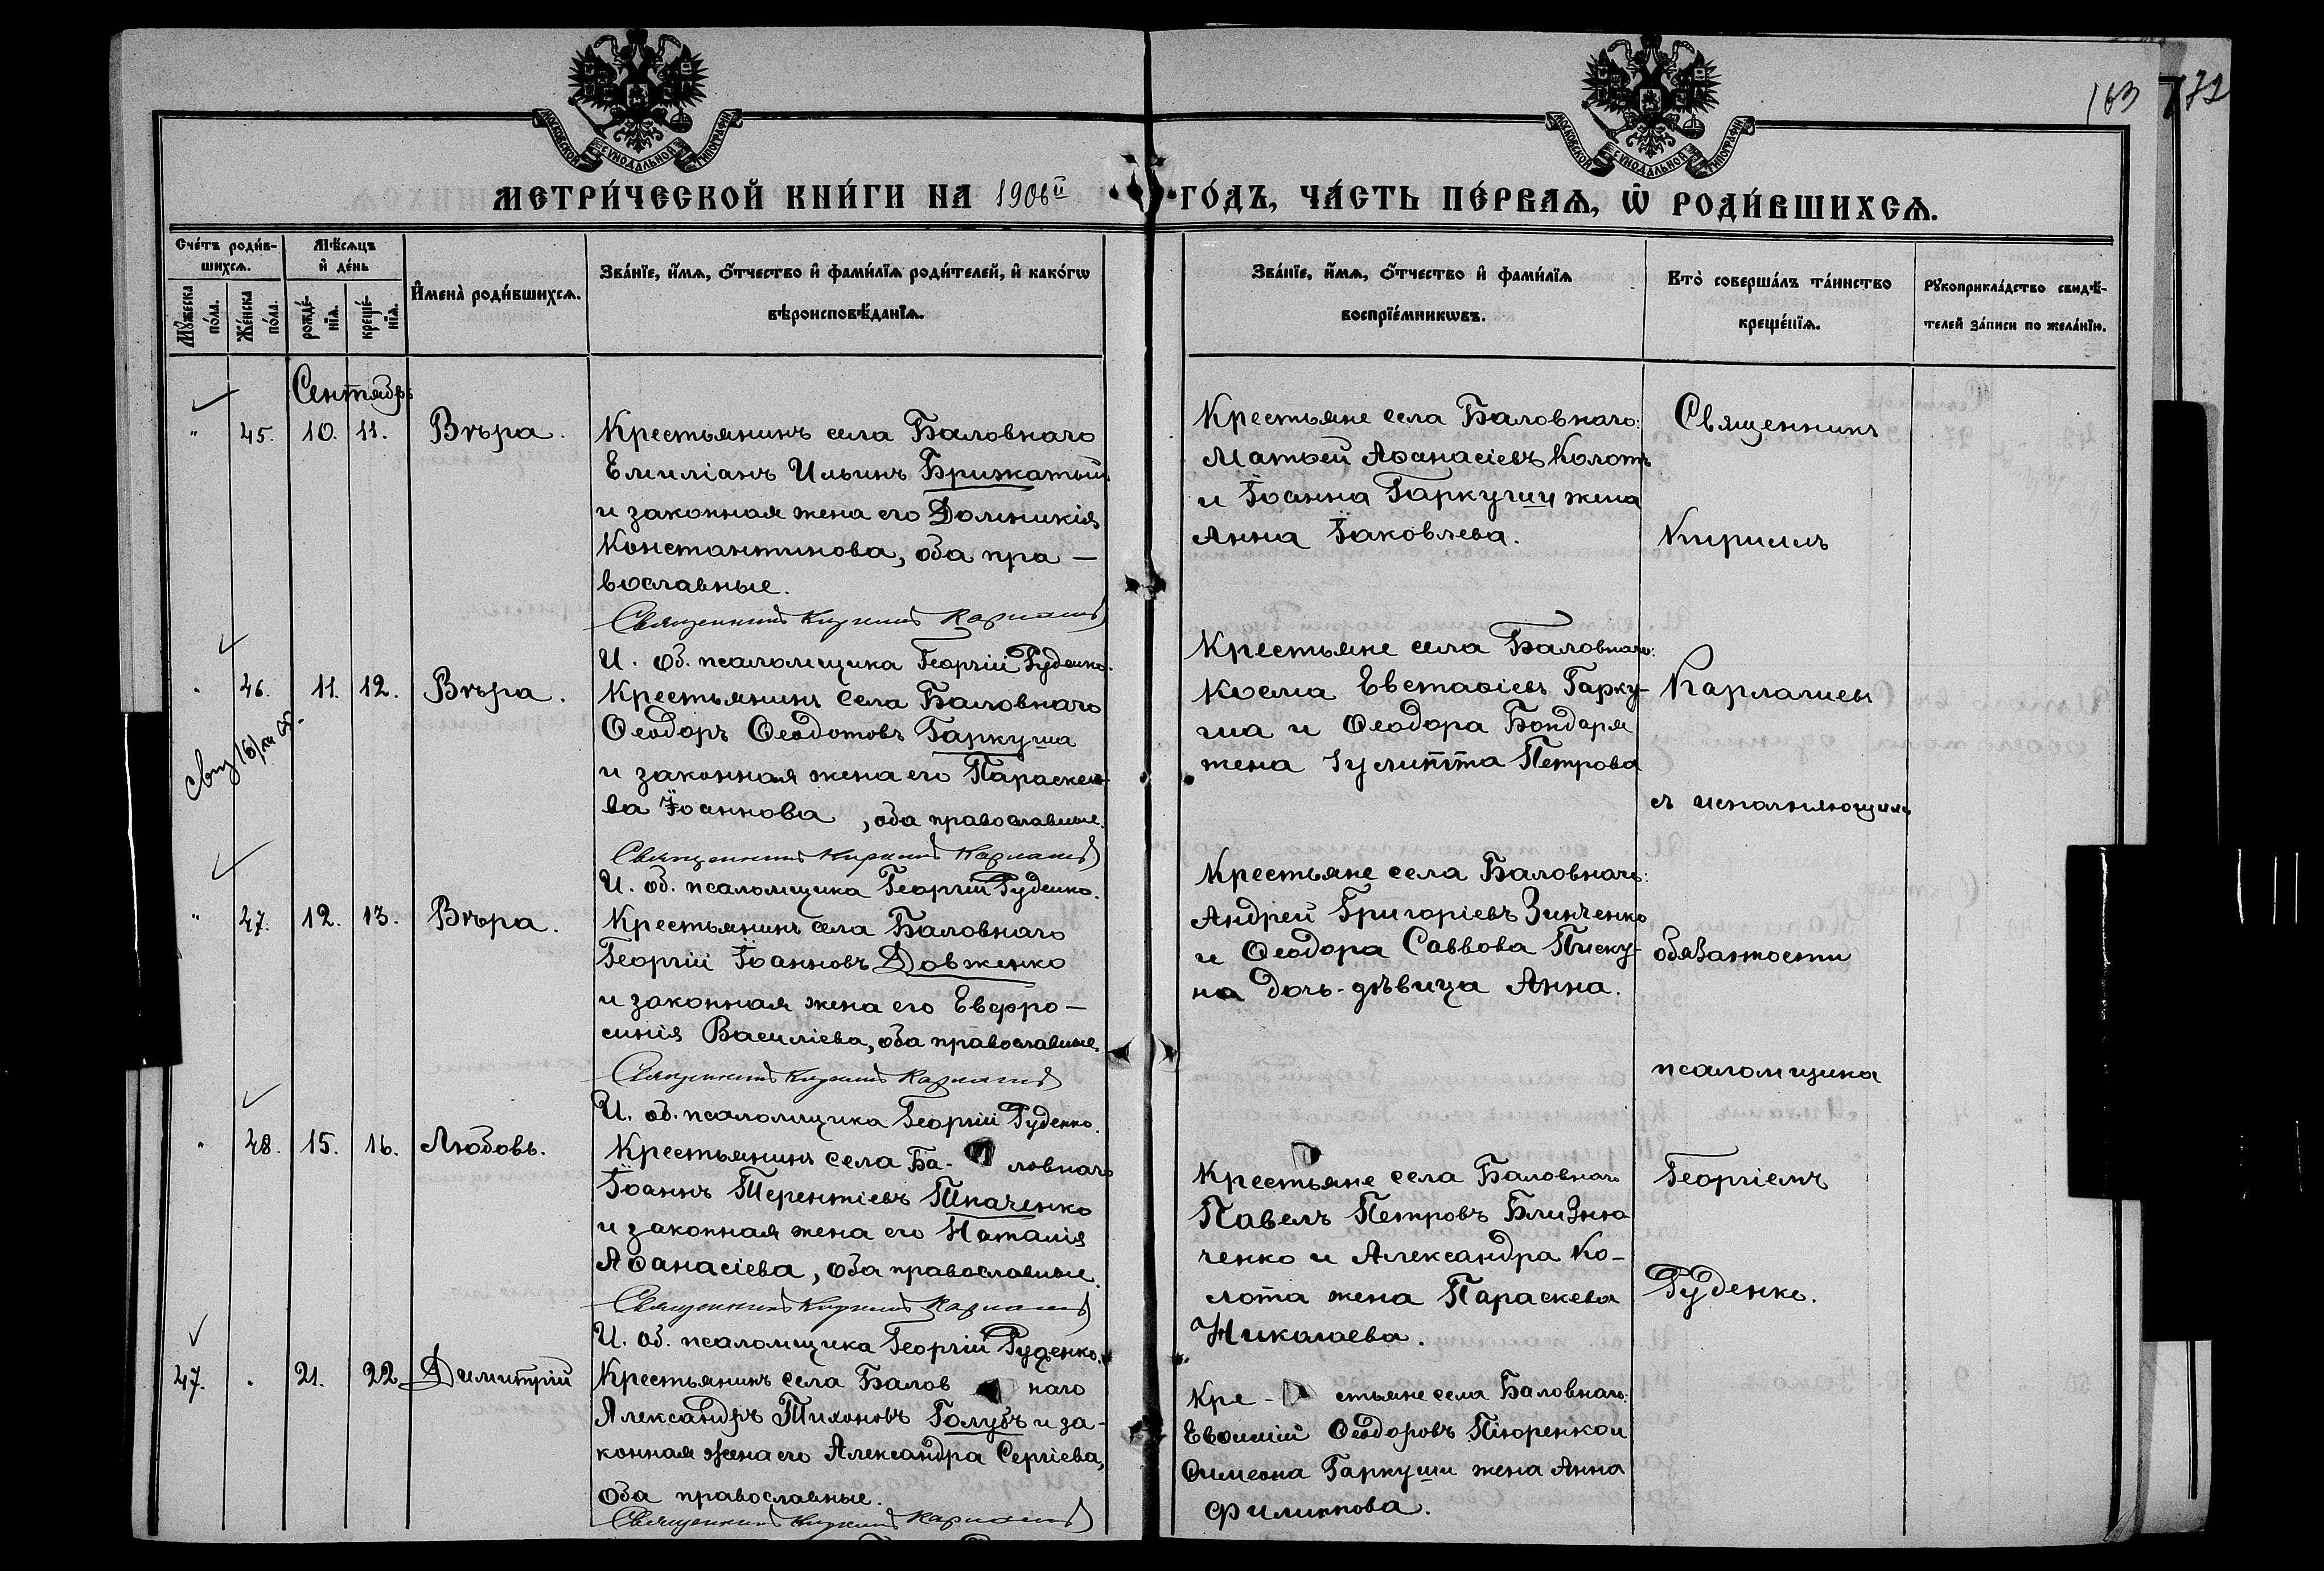 163 172
МОСКОВСКОЙ СѴНОДАЛЬНОЙ ТИПОГРАФІИ
МОСКОВСКОЙ СѴНОДАЛЬНОЙ ТИПОГРАФІИ
МЕТРИ́ЧЕСКОЙ КНИ́ГИ НА 1906й ГО́ДЪ, ЧА́СТЬ ПЕ́РВАѦ, Ѡ҆ РОДИ́ВШИХСѦ.
Сче́тъ роди́в-
шихсѧ.
Мꙋ́жеска по́ла.
Же́нска по́ла.
Мѣ́сѧцъ
и҆ де́нь
рожде́-
нїѧ.
креще́-
нїѧ.
И҆мена̀ роди́вшихсѧ.
Зва́нїе, и҆́мѧ, ѻ҆́тчество и҆ фами́лїѧ роди́телей, и҆ како́гѡ
вѣроисповѣ́данїѧ.
Зва́нїе, и҆́мѧ, ѻ҆́тчество и҆ фами́лїѧ
воспрїе́мникѡвъ.
Кто̀ соверша́лъ та́инство
креще́нїѧ.
Рꙋкоприкла́дство свидѣ́-
телей за́писи по жела́нїю.
Сентябрь
" 45. 10. 11. Вѣра.
Крестьянинъ села Баловнаго
Емиліанъ Ильинъ Брижатый
и законная жена его Домникія
Константинова, оба пра-
вославные.
Священникъ Кириллъ Карпалиевъ
И. об. псаломщика Георгій Руденко.
Крестьяне села Баловнаго:
Матѳей Аѳанасіевъ Колотъ
и Іоанна Гаркуши жена
Анна Іаковлева.
" 46. 11. 12. Вѣра.
Крестьянинъ села Баловнаго
Ѳеодоръ Ѳеодотовъ Гаркуша
и законная жена его Параске-
ва Іоаннова, оба православные.
Священникъ Кириллъ
И. об. псаломщика Георгій Руденко.
Крестьяне села Баловнаго:
Косма Евстаѳіевъ Гарку-
ша и Ѳеодора Бондаря
жена Іулитта Петрова
" 47. 12. 13. Вѣра.
Крестьянинъ села Баловнаго
Георгій Іоанновъ Довженко
и законная жена его Евфро-
синія Василіева, оба православные.
Священникъ Кириллъ
И. об. псаломщика Георгій Руденко.
Крестьяне села Баловнаго:
Андрей Григоріевъ Зинченко
и Ѳеодора Саввова Писку-
на дочь-дѣвица Анна.
" 48. 15. 16. Любовь.
Крестьянинъ села Ба-ловнаго
Іоаннъ Терентіевъ Ткаченко
и законная жена его Наталія
Аѳанасіева, оба православные.
Священникъ Кириллъ
И. об. псаломщика Георгій Руденко.
Крестьяне села Баловнаго
Павелъ Петровъ Близню
ченко и Александра Ко-
лота жена Параскева
Николаева.
47. " 21. 22. Димитрій
Крестьянинъ села Баловнаго
Александръ Тихоновъ Голубъ и за-
конная жена его Александра Сергіева,
оба православные.
Священникъ Кириллъ
Кре-стьяне села Баловнаго:
Евѳимій Ѳеодоровъ и
Симеона Гаркуши жена Анна
Филиппова.
Священникъ
Кириллъ
с исполняющимъ
обязанности
псаломщика
Георгіемъ
Руденко.